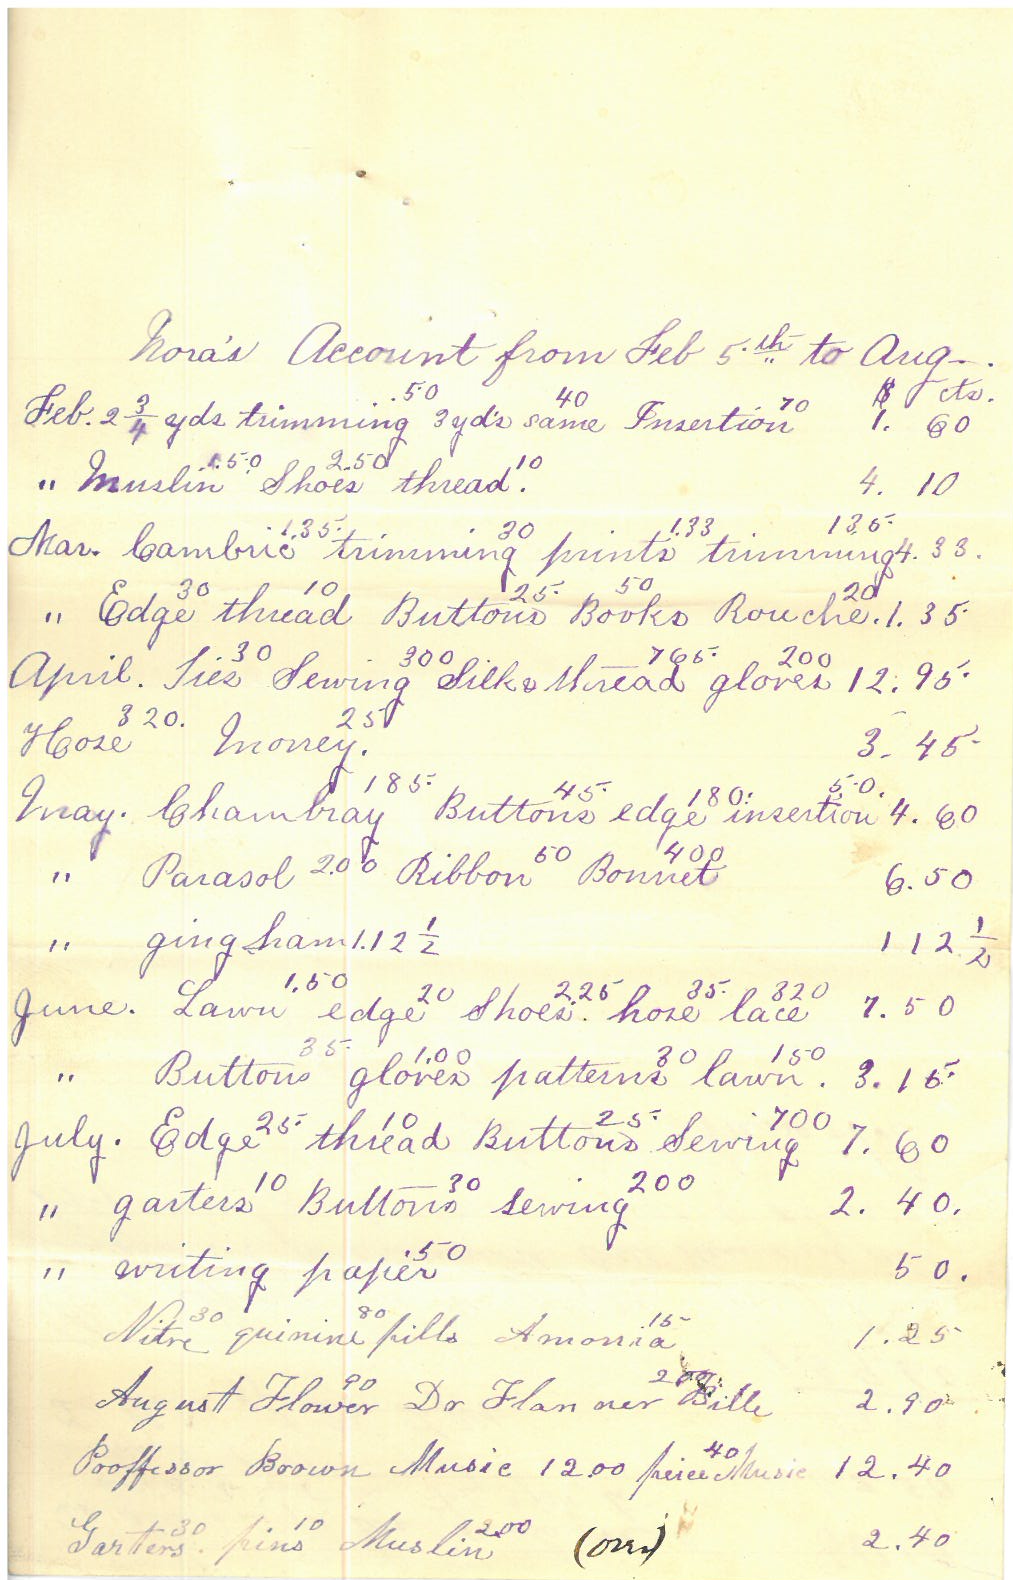 Nora's Account from Feb 5th to Aug.
$ cts.
Feb. 2 3/4 yds trimming .50 3 yd's same 40 Insertion 70 1. 60
" Muslin 1.50 Shoes 2.50 thread 10. 4. 10
Mar. Cambric 1.35. trimming 30 prints 1.33 trimming 135. 4. 33.
" Edge 30 thread 10 Buttons 25. Books 50 Rouche. 20 1. 35
April. Ties 30 Sewing 300 Silks thread 765. gloves 200 12. 95.
Hose 320. Money. 25 3. 45
May. Chambray 185. Buttons 45. edge 180. insertion 50. 4. 60
" Parasol 2.00 Ribbon 50 Bonnet 400 6. 50
" gingham 1.12 1/2 112 1/2
June. Lawn 1.50 edge 20 Shoes. 2.25 hose 35. lace 320 7. 50
" Buttons 35. gloves 1.00 patterns 30 lawn. 150 3. 15.
July. Edge 25. thread 10 Buttons 25. Sewing 700 7. 60
" garters 10 Buttons 30 sewing 200 2. 40.
" writing paper .50 50.
Nitre 30 quinine pills 80 Amonia 15 1.25
August Flower 90 Dr Flanner Bille 200 2.90
Proffessor Brown Music 12.00 peice Music 40 12.40
Garters. 30 pins 10 Muslin 2.00 (over) 2.40